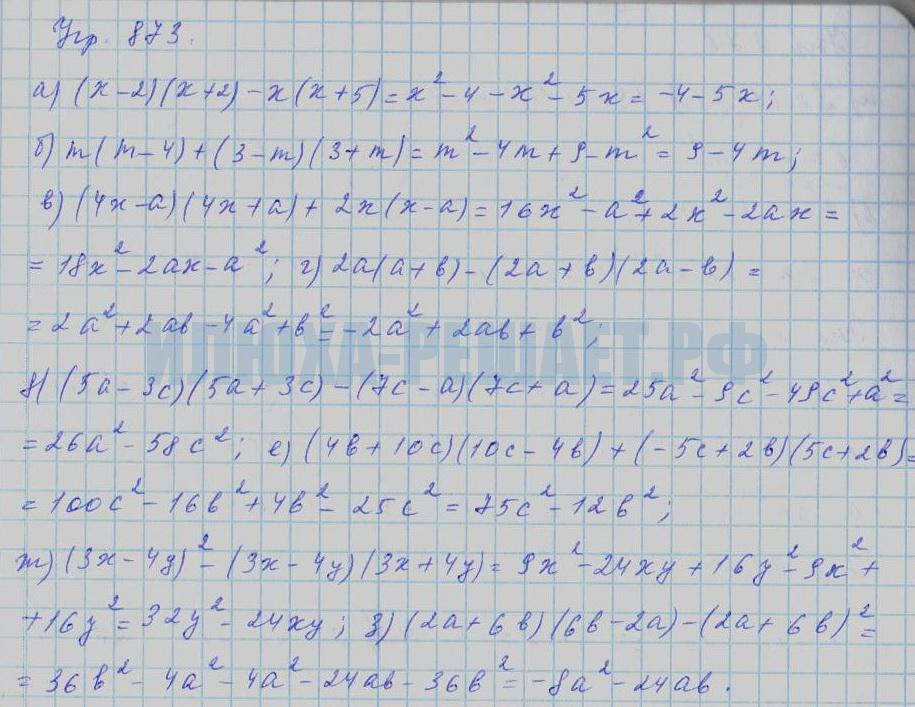 Упр. 873.
а) (x-2)(x+2)-x(x+5)=x²-4-x²-5x=-4-5x;
б) m(m-4)+(3-m)(3+m)=m²-4m+9-m²=9-4m;
в) (4x-a)(4x+a)+2x(x-a)=16x²-a²+2x²-2ax=
=18x²-2ax-a²; г) 2a(a+в)-(2a+в)(2a-в)=
=2a²+2aв-4a²+в²=-2a²+2aв+в²;
ИЛЮХА-РЕШАЕТ.РФ
д) (5a-3c)(5a+3c)-(7c-a)(7c+a)=25a²-9c²-49c²+a²=
=26a²-58c²; е) (4в+10c)(10c-4в)+(-5c+2в)(5c+2в)=
=100c²-16в²+4в²-25c²=75c²-12в²;
ж) (3x-4y)²-(3x-4y)(3x+4y)=9x²-24xy+16y²-9x²+
+16y²=32y²-24xy; з) (2a+6в)(6в-2a)-(2a+6в)²=
=36в²-4a²-4a²-24aв-36в²=-8a²-24aв.